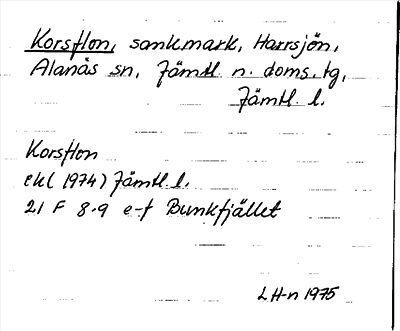 Korsflon, sankmark, Harrsjön,
Alanäs sn, Jämtl. n. doms. tg,
Jämtl. l.
Korsflon
ek (1974) Jämtl. l.
21 F 8-9 e-f Bunkfjället
LH-n 1975